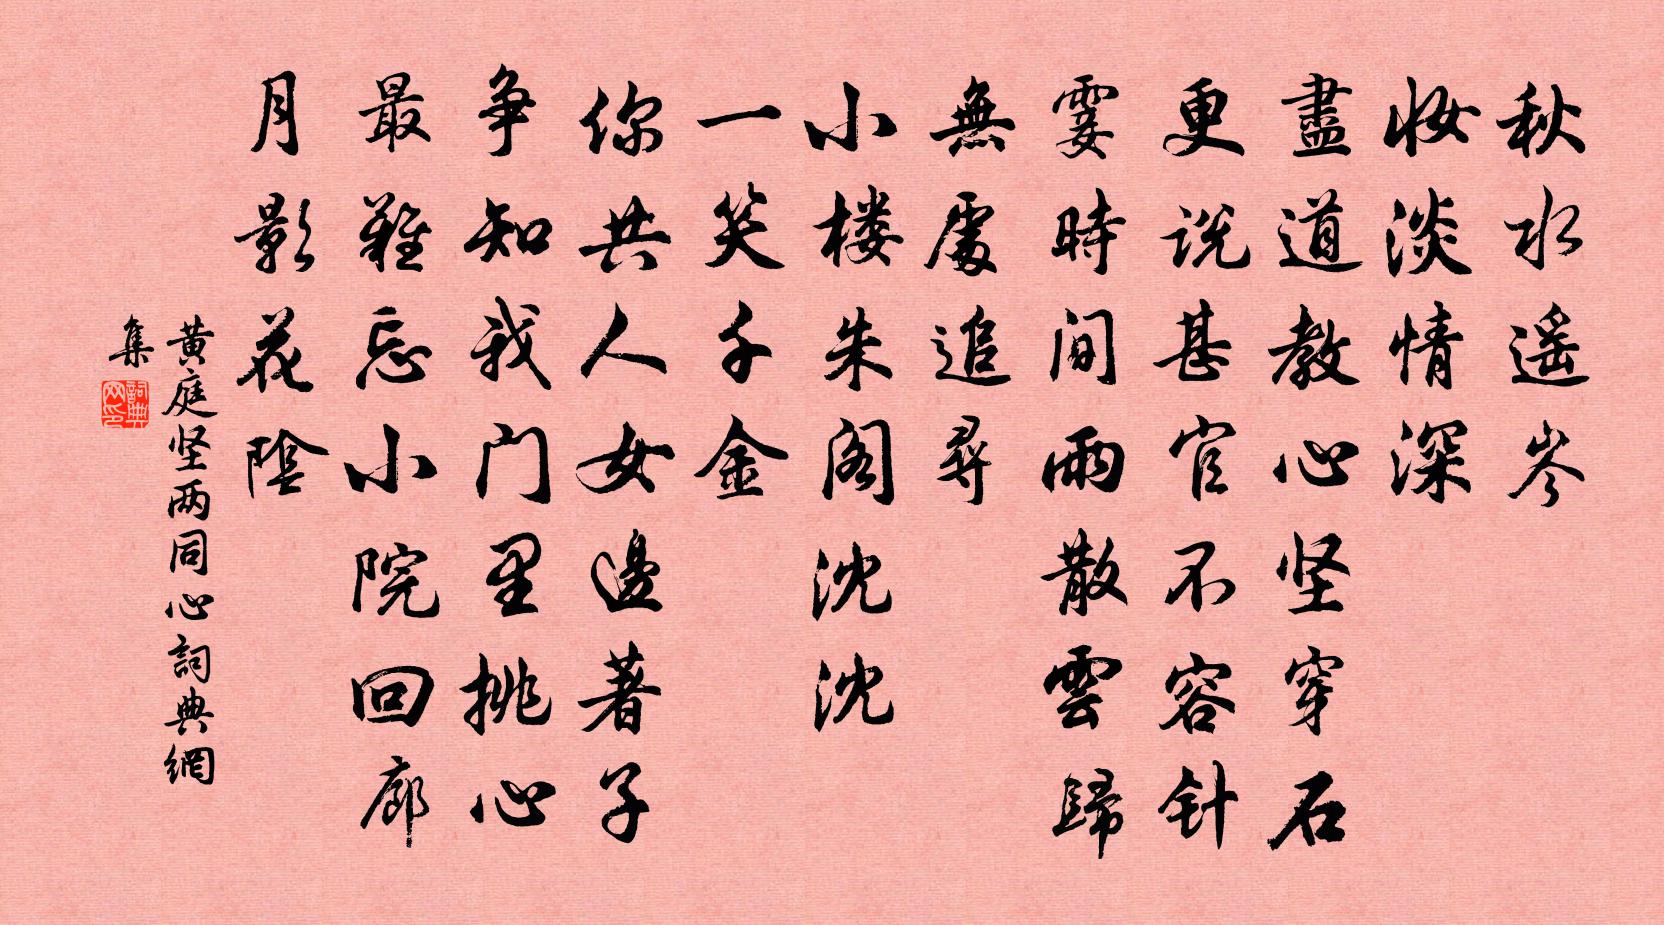 秋水遥岑
妆淡情深
盡道教心坚穿石
更说甚官不容针
霎時间雨散雲歸
無處追尋
小楼朱阁沈沈
一笑千金
你共人女邊著子
争知我门里挑心
最難忘小院回廊
月影花陰
黄庭坚两同心詞典網
集
詞典网印